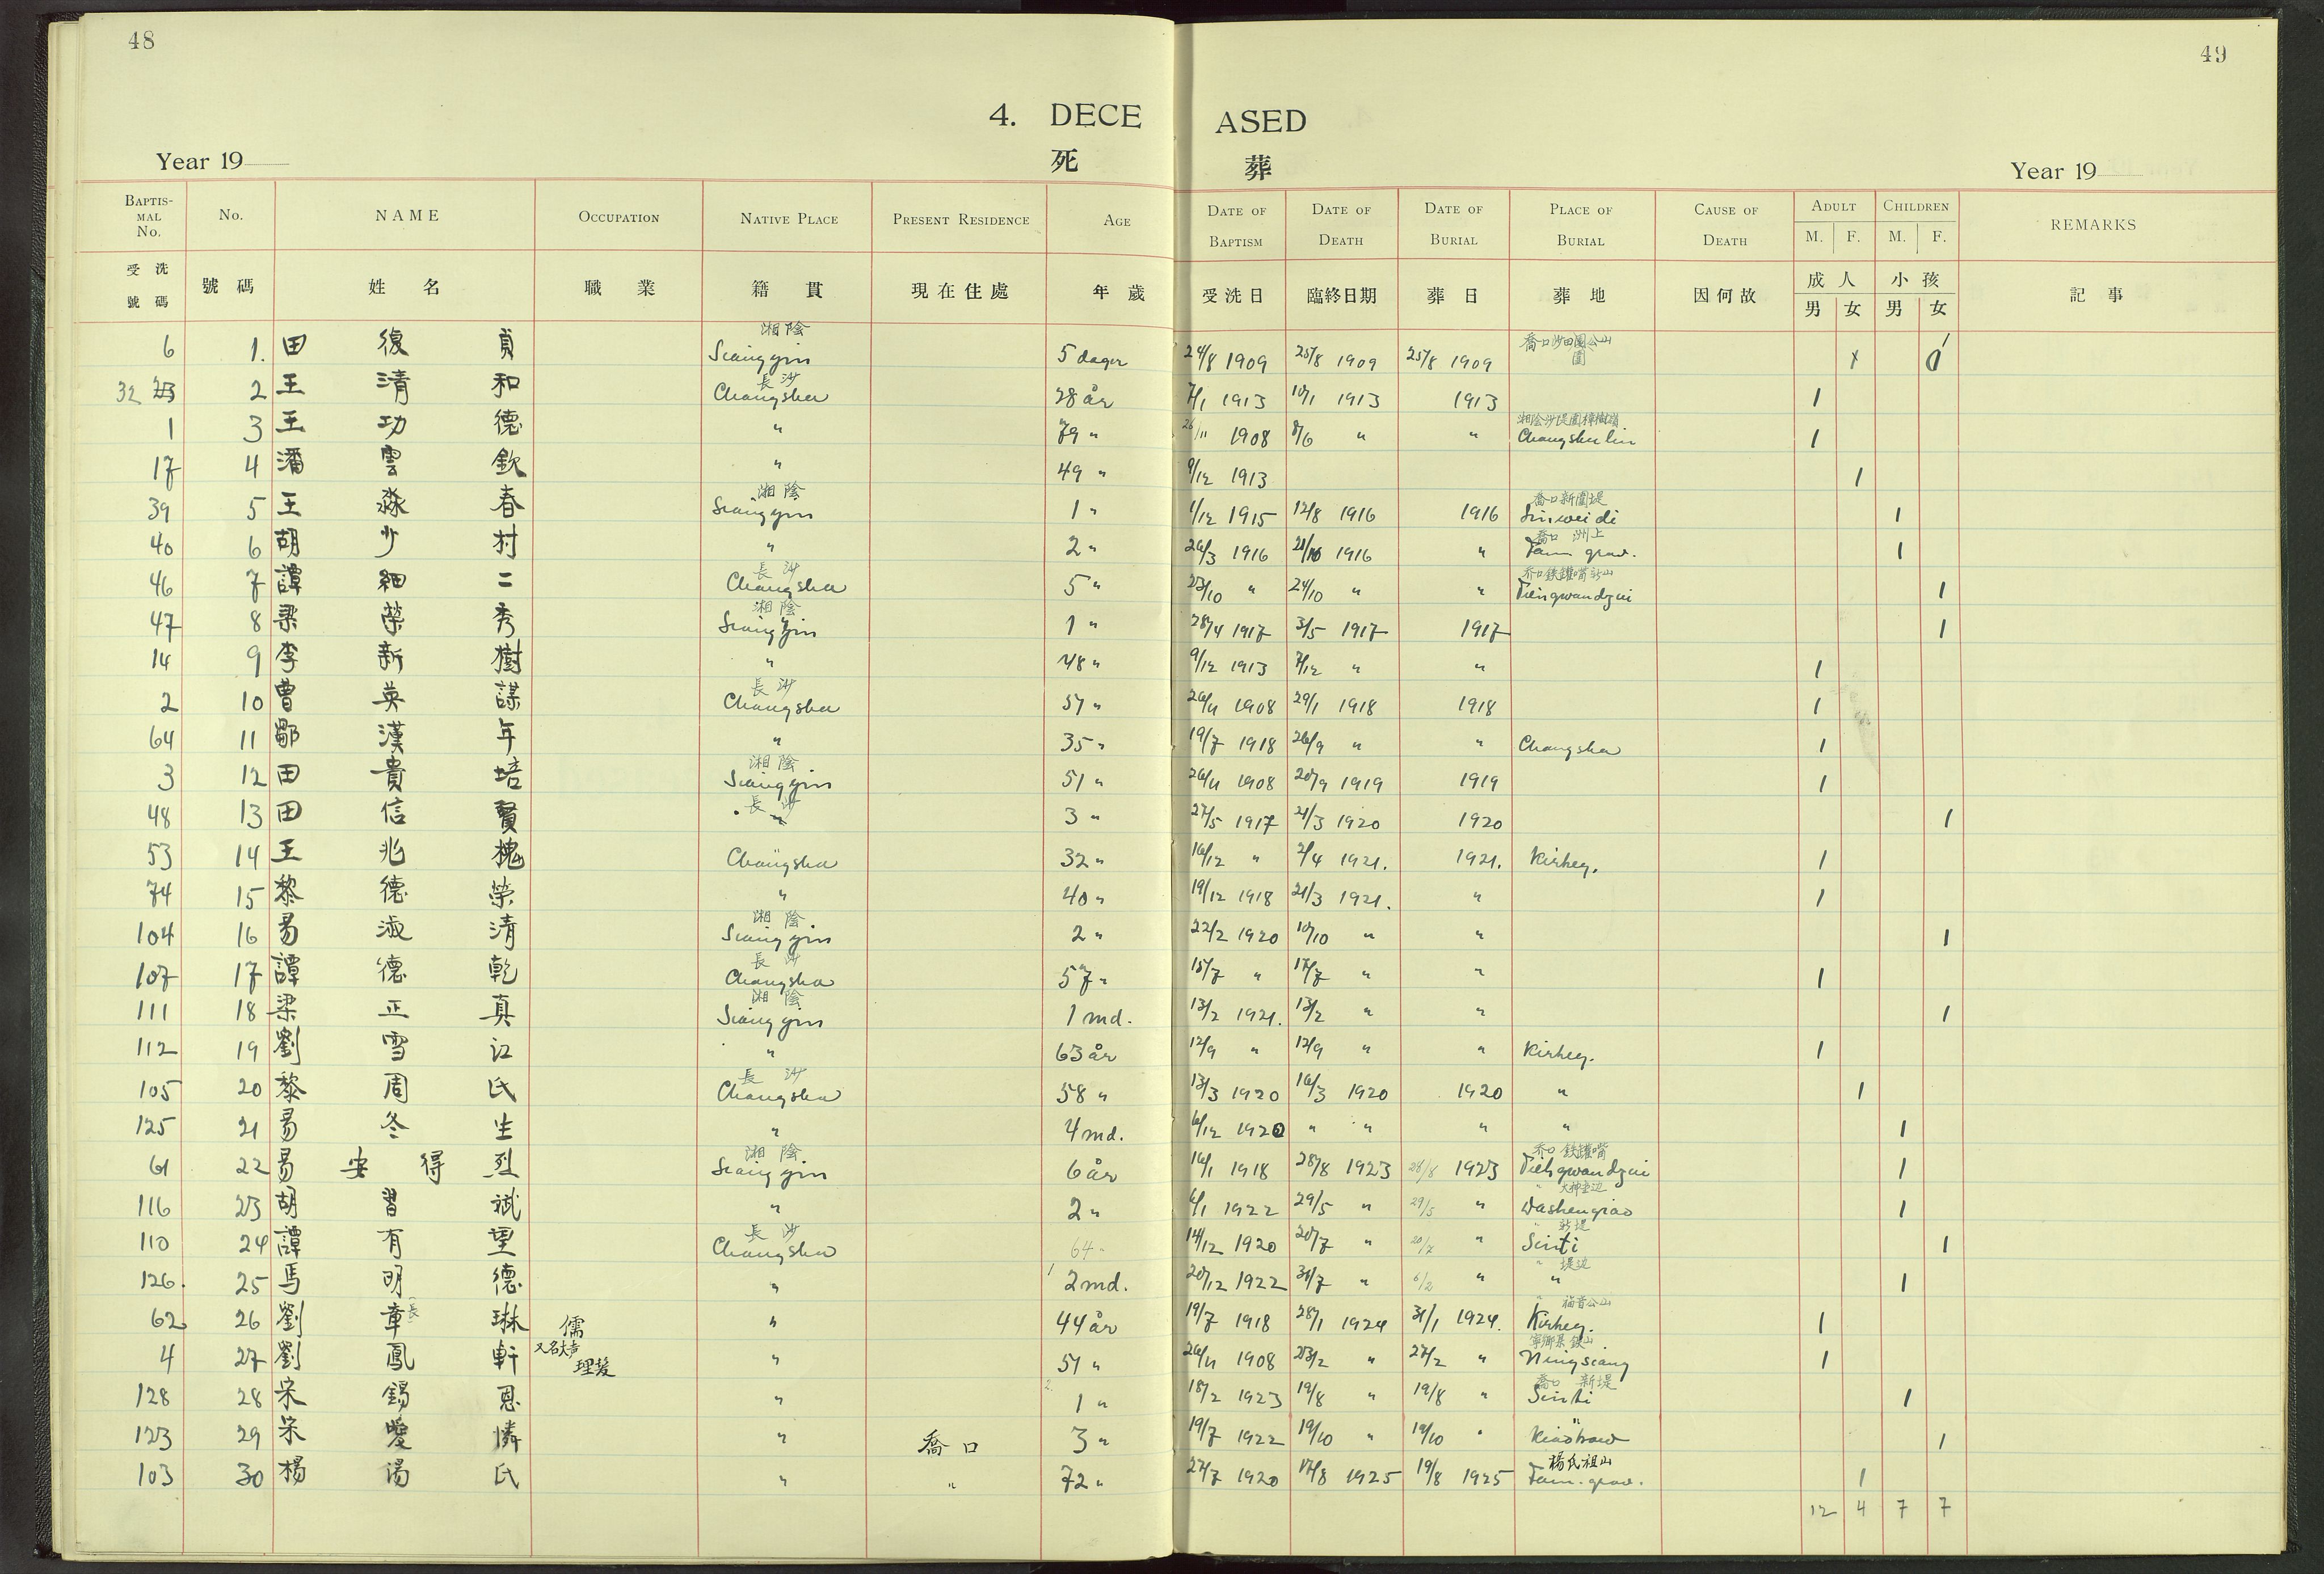 48
49
4. DECEASED
死 葬
Year 19
Year 19
BAPTISMAL No. No. NAME OCCUPATION NATIVE PLACE PRESENT RESIDENCE AGE DATE OF BAPTISM DATE OF DEATH DATE OF BURIAL PLACE OF BURIAL CAUSE OF DEATH ADULT M. F. CHILDREN M. F. REMARKS
受洗號碼 號碼 姓名 職業 籍貫 現在住處 年歲 受洗日 臨終日期 葬日 葬地 因何故 成人 男 女 小孩 男 女 記事
6 1. 田復貞 湘陰 Siangyin 5 dager 24/8 1909 25/8 1909 25/8 1909 喬口沙田圍公山
32 2 王清和 長沙 Changsha 28 år 7/1 1913 10/1 1913 1913 1
1 3 王功德 " 79 " 26/11 1908 8/6 " " Changshulin 1
17 4 潘雲欽 " 49 " 9/12 1913 1
39 5 王淼春 湘陰 Siangyin 1 " 1/12 1915 12/8 1916 1916 喬口新圍堤 Sinweidi 1
40 6 胡少村 " 2 " 26/3 1916 21/10 1916 " 喬口 洲上 Fam grav. 1
46 7 譚細二 長沙 Changsha 5 " 23/10 " 24/10 " " Tiehgwandzui 1
47 8 梁榮秀 湘陰 Siangyin 1 " 28/4 1917 3/5 1917 1917 1
14 9 李新樹 " 48 " 9/12 1913 7/12 " " 1
2 10 曹英謀 長沙 Changsha 57 " 26/11 1908 29/1 1918 1918 1
64 11 鄒漢年 " 35 " 19/7 1918 26/9 " " Changsha 1
3 12 田貴培 湘陰 Siangyin 51 " 26/11 1908 20/9 1919 1919 1
48 13 田信賢 長沙 " 3 " 27/5 1917 21/3 1920 1920 1
53 14 王兆槐 Changsha 32 " 16/12 " 2/4 1921. 1921. Kirkeg. 1
74 15 黎德榮 " 40 " 19/12 1918 21/3 1921. " 1
104 16 易淑清 湘陰 Siangyin 2 " 22/2 1920 10/10 " " 1
107 17 譚德乾 長沙 Changsha 57 " 15/7 " 17/7 " " 1
111 18 梁正真 湘陰 Siangyin 1 md. 13/2 1921. 13/2 " " 1
112 19 劉雪江 " 63 år 12/9 " 12/9 " " Kirkeg. 1
105 20 黎周氏 長沙 Changsha 58 " 13/3 1920 16/3 1920 1920 " 1
125 21 易冬生 " 4 md. 6/12 1920 " " " " 1
61 22 易安得烈 湘陰 Siangyin 6 år 16/1 1918 28/8 1923 28/8 1923 喬口 鉄罐嘴 Tiehgwandzui 1
116 23 胡習斌 " 2 " 6/1 1922 29/5 " 29/5 " Dashengiao 1
110 24 譚有望 長沙 Changsha 64 " 14/12 1920 20/7 " 20/7 " " 新堤 Sinti 1
126. 25 馬明德 " 2 md. 20/12 1922 31/7 " " " 堤边 " 1
62 26 劉章(長)琳 儒 " 44 år 19/7 1918 28/1 1924 31/1 1924. " 福音公山 Kirkeg. 1
4 27 劉鳳軒 理髮 " 51 " 26/11 1908 23/2 " 27/2 " Ningsiang 1
128 28 宋錫恩 " 1 " 18/2 1923 19/8 " 19/8 " 喬口 新堤 Sinti 1
123 29 宋愛憐 " 喬口 3 " 19/7 1922 19/10 " 19/10 " 1
103 30 楊湯氏 " " 72 " 27/7 1920 17/8 1925 19/8 1925 楊氏祖山 Fam. grav. 1
12 4 7 7